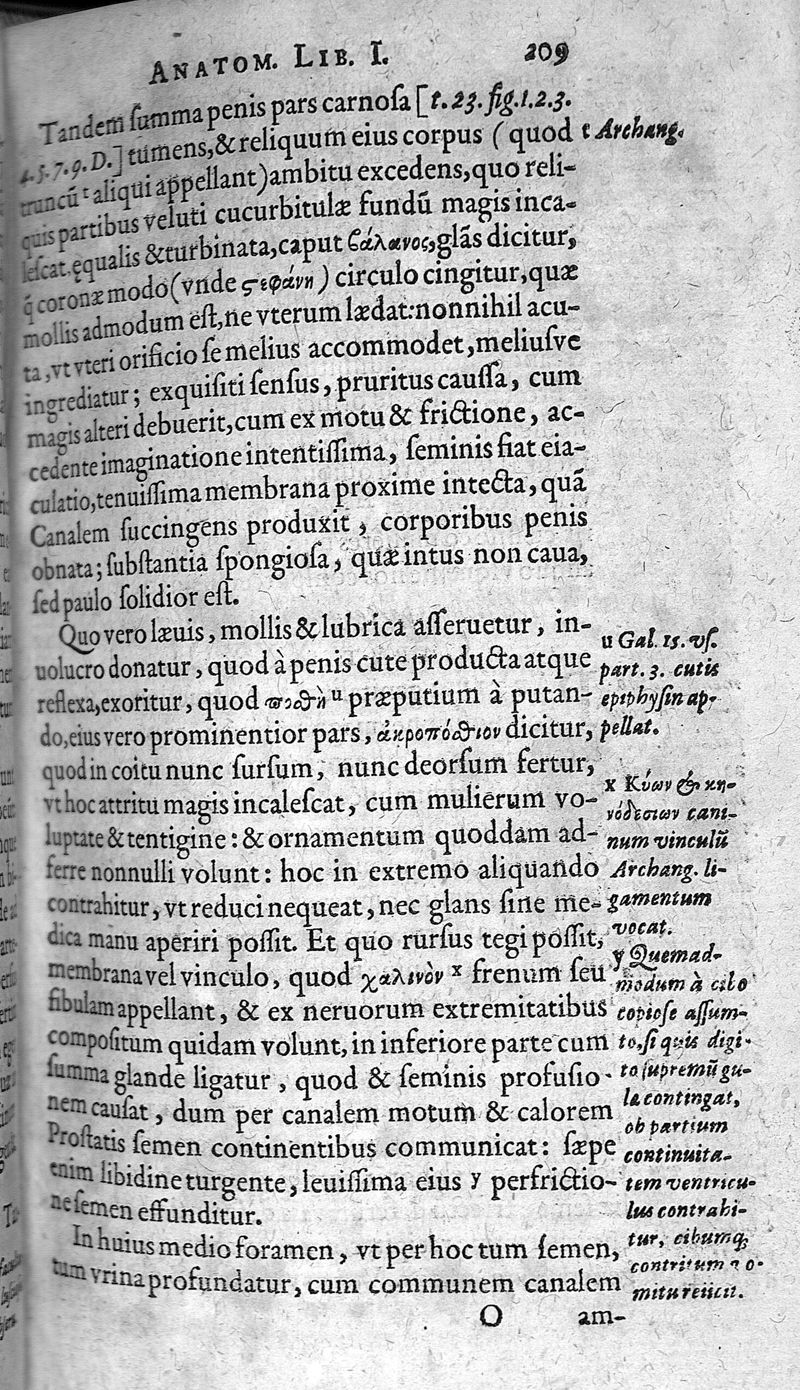 ANATOM. LIB. I. 209
Tandem ſumma penis pars carnoſa [t. 23. fig. 1. 2. 3.
4. 5. 7. 9. D.] tumens, & reliquum eius corpus (quod
truncũ ᵗ aliqui appellant) ambitu excedens, quo reli-
quis partibus veluti cucurbitulæ fundũ magis inca-
leſcat. ęqualis & turbinata, caput βάλανος, glãs dicitur,
q̃ coronæ modo (vnde ϛεφάνη) circulo cingitur, quæ
mollis admodum eſt, ne vterum lædat: nonnihil acu-
ta, vt vteri orificio ſe melius accommodet, meliuſve
ingrediatur; exquiſiti ſenſus, pruritus cauſſa, cum
magis alteri debuerit, cum ex motu & frictione, ac-
cedente imaginatione intentiſſima, ſeminis fiat eia-
culatio, tenuiſſima membrana proxime intecta, quã
Canalem ſuccingens produxit, corporibus penis
obnata; ſubſtantia ſpongioſa, quæ intus non caua,
ſed paulo ſolidior eſt.
Quo vero læuis, mollis & lubrica aſſeruetur, in-
uolucro donatur, quod à penis cute producta atque
reflexa, exoritur, quod ϖόϑη ᵘ præputium à putan-
do, eius vero prominentior pars, ἀκροπόϑιον dicitur,
quod in coitu nunc ſurſum, nunc deorſum fertur,
vt hoc attritu magis incaleſcat, cum mulierum vo-
luptate & tentigine: & ornamentum quoddam ad-
ferre nonnulli volunt: hoc in extremo aliquando
contrahitur, vt reduci nequeat, nec glans ſine me-
dica manu aperiri poſſit. Et quo rurſus tegi poſſit,
membrana vel vinculo, quod χαλινὸν ˣ frenum ſeu
fibulam appellant, & ex neruorum extremitatibus
compoſitum quidam volunt, in inferiore parte cum
ſumma glande ligatur, quod & ſeminis profuſio-
nem cauſat, dum per canalem motum & calorem
Proſtatis ſemen continentibus communicat: ſæpe
enim libidine turgente, leuiſſima eius ʸ perfrictio-
ne ſemen effunditur.
In huius medio foramen, vt per hoc tum ſemen,
tum vrina profundatur, cum communem canalem
O am-
t Archang.
u Gal. 15. vſ.
part. 3. cutis
epiphyſin ap-
pellat.
x Κύων & κη-
νόδεσιων cani-
num vinculũ
Archang. li-
gamentum
vocat.
y Quemad-
modum à cibo
copioſe aſſum-
to, ſi quis digi-
to ſupremũ gu-
la contingat,
ob partium
continuita-
tem ventricu-
lus contrahi-
tur, cibumq́;
contritum vo-
mitu reiicit.